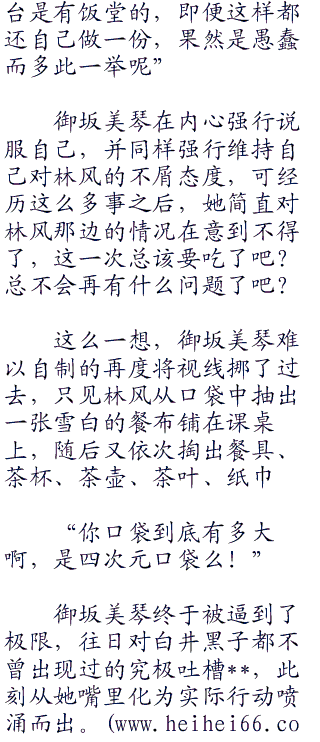 台是有饭堂的，即便这样都
还自己做一份，果然是愚蠢
而多此一举呢”
御坂美琴在内心强行说
服自己，并同样强行维持自
己对林风的不屑态度，可经
历这么多事之后，她简直对
林风那边的情况在意到不得
了，这一次总该要吃了吧？
总不会再有什么问题了吧？
这么一想，御坂美琴难
以自制的再度将视线挪了过
去，只见林风从口袋中抽出
一张雪白的餐布铺在课桌
上，随后又依次掏出餐具、
茶杯、茶壶、茶叶、纸巾
“你口袋到底有多大
啊，是四次元口袋么！”
御坂美琴终于被逼到了
极限，往日对白井黑子都不
曾出现过的究极吐槽**，此
刻从她嘴里化为实际行动喷
涌而出。(www.heihei66.co